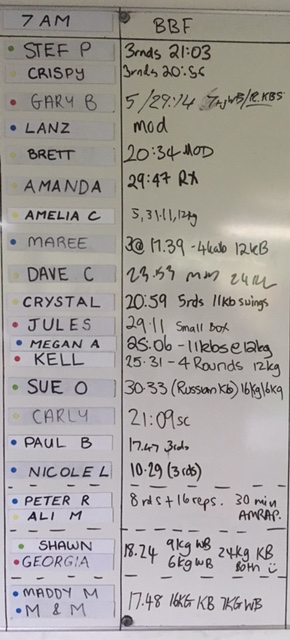 7 AM BBF
STEF P 3rnds 21:03
CRISPY 3rnds 20:56
GARY B 5/29:14 7kg WB/12 KBS
LANZ mod
BRETT 20:34 MOD
AMANDA 29:47 RX
AMELIA C 5, 31:11, 12kg
MAREE 3@ 17.39 - 12kB
DAVE C 23.53
CRYSTAL 20.59 5rds 11kb swings
JULES 29.11 Small Box
MEGAN A 25.06 - 11kbs@12kg
KELL 25.31 - 4 Rounds 12kg
SUE O 30.33 (Russian Kb) 16kg/6kg
CARLY 21:09 sc
PAUL B 17.47 3rds
NICOLE L 10.29 (3rds)
PETER R 8rds + 16reps. 30 min
ALI M AMRAP.
SHAWN 18.24 9kg WB 24kg KB
GEORGIA 6kg WB Both
MADDY M 17.48 16KG KB 7KG WB
M & M